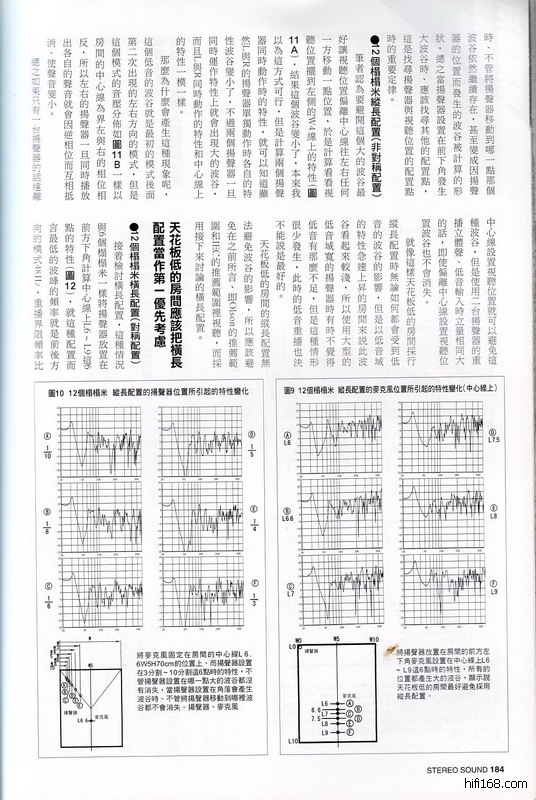 時、不管將揚聲器移動到哪一點那個
波谷依然繼續存在，甚至變成因揚聲
器的位置而發生的波谷被計算的形
狀，總之當揚聲器設置在前下角發生
大波谷時，應該找尋其他的配置點，
這是找尋揚聲器與視聽位置的配置點
時的重要定律。
●12個榻榻米縱長配置(非對稱配置)
筆者認為要避開這個大的波谷最
好讓視聽位置偏離中心線往左右任何
一方移動一點位置，於是計算看看視
聽位置擺到左側的W4線上的特性(圖
11A)，結果這個波谷變小了，本來我
以為這方式可行，但是計算兩個揚聲
器同時動作時的特性，就可以知道雖
然L與R的揚聲器單獨動作時各自的特
性波谷變小了，不過兩個揚聲器一旦
同時運作特性上就會出現大的波谷，
而且L與R同時動作的特性和中心線上
的特性一模一樣。
那麼為什麼會產生這種現象呢，
這個低音的波谷就是最初的模式後面
第二次出現的左右方向的模式，但是
這個模式的音壓分佈如圖11B一樣以
房間的中心線為界左與右的相位相
反，所以左右的揚聲器一旦同時播放
出各自的聲音就會因逆相位而互相抵
消，使聲音變小。
總之如果只有一台揚聲器的話遠離
中心線設置視聽位置就可以避免這
種波谷，但是使用二台揚聲器的重
播立體聲，低音輸入時立量相同大
的話，即使偏離中心線設置視聽位
置波谷也不會消失。
就像這樣天花板低的房間採行
縱長配置時無論如何都會受到低
音的波谷的影響，但是以低音域
的特性急速上昇的房間來說此波
谷看起來較淺，所以使用大型的
低音域寬的揚聲器時有時不覺得
低音有那麼不足，但是這種情形
很少發生，此時的低音重播也決
不能說是最好的。
天花板低的房間的縱長配置無
法避免波谷的影響，所以應該避
免在之前所言，即Olson的推薦範
圍和IEC的推薦範圍裡視聽，而採
用接下來討論的橫長配置。
天花板低的房間應該把橫長
配置當作第一優先考慮
●12個榻榻米橫長配置(對稱配置)
接着檢討橫長配置，這種情況
與6個榻榻米一樣將揚聲器放置在
前方下角計算中心線上L6～L9這6
點的特性(圖12)，就這種配置而
言最低的波峰的頻率就是前後方
向的模式48Hz，重播界限頻率比
圖10 12個榻榻米 縱長配置的揚聲器位置所引起的特性變化
A 1/10
D 1/5
B 1/8
E 1/4
C 1/6
F 1/3
W5
揚聲器
麥克風
L6.6
將麥克風固定在房間的中心線L6.
6W5H70cm的位置上，而揚聲器設置
在3分割～10分割這6點時的特性，不
管揚聲器設置在哪一點大的波谷都沒
有消失，當揚聲器設置在角落會產生
波谷時，不管將揚聲器移動到哪裡波
谷都不會消失。揚聲器、麥克風
圖9 12個榻榻米 縱長配置的麥克風位置所引起的特性變化(中心線上)
A L6
D L7.5
B L6.6
E L8
C L7
F L9
W0 W5 W10
L0
揚聲器
L6 A
6.6 B
L7 C
7.5 D
L8 E
L9 F
麥克風
L10
將揚聲器放置在房間的前方左
下角麥克風設置在中心線上L6
～L9這6點時的特性，所有的
位置都產生大的波谷，顯示說
天花板低的房間最好避免採用
縱長配置。
STEREO SOUND 184
hifi168.com